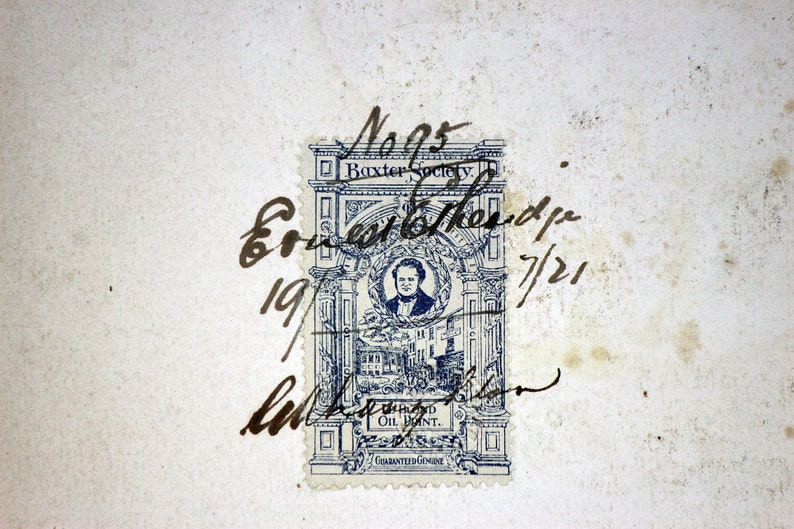 No 95
Baxter Society.
Ernest Etheridge
19/ 7/21
Oil Print.
Guaranteed Genuine